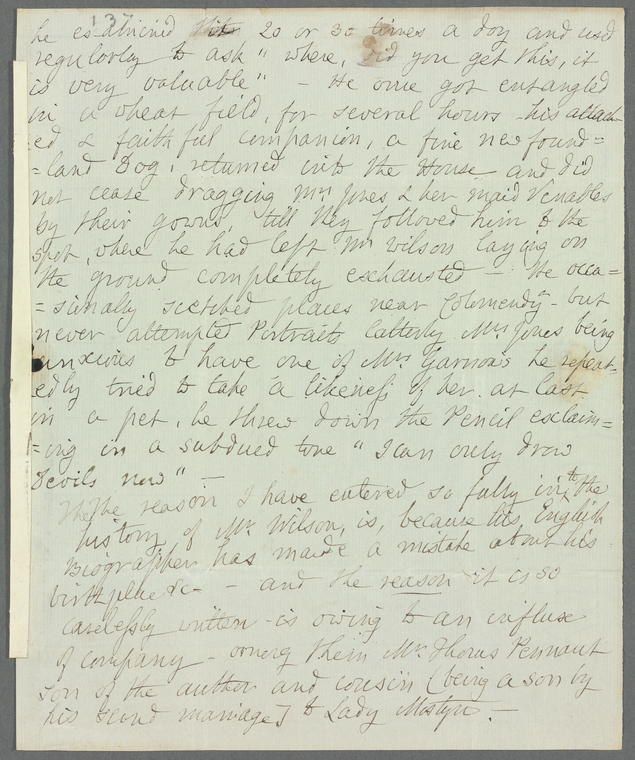 137
he examined this 20 or 30 times a day and used
regularly to ask "where, did you get this, it
is very valuable" – He once got entangled
in a wheat field, for several hours – his attach
ed & faithful companion, a fine newfound=
=land Dog, returned into the House and did
not cease dragging Mrs Jones & her maid Venables
by their gowns, till they followed him to the
spot, where he had left Mr Wilson laying on
the ground completely exhausted – He occa=
=sionally scetched places near Colomendy – but
never attempted Portraits latterly Mrs Jones being
anxious to have one of Mrs Garnons he repeat=
edly tried to take a likeness of her. at last
in a pet, he threw down the Pencil exclaim=
=ing in a subdued tone "I can only draw
Devils now" –
The reason I have entered so fully into the
history of Mr Wilson, is, because his English
Biographer has made a mistake about his
birthplace &c – and the reason it is so
carelessly written – is owing to an influx
of company – among them Mr Thomas Pennant
son of the author and cousin (being a son by
his second marriage) to Lady Mostyn –